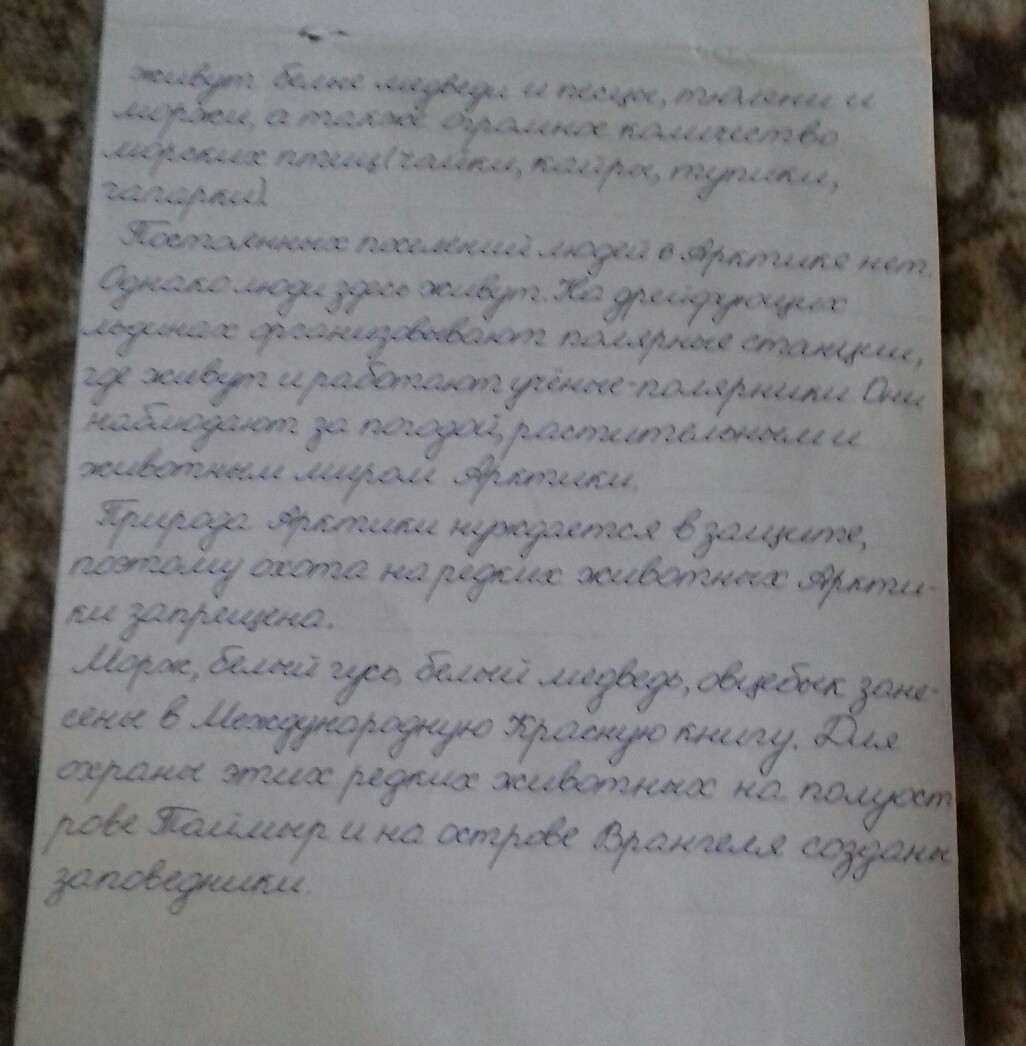 живут белые медведи и песцы, тюлени и
моржи, а также огромное количество
морских птиц (чайки, кайры, тупики,
гагарки).
Постоянных поселений людей в Арктике нет.
Однако люди здесь живут. На дрейфующих
льдинах организовывают полярные станции,
где живут и работают учёные-полярники. Они
наблюдают за погодой, растительным и
животным миром Арктики.
Природа Арктики нуждается в защите,
поэтому охота на редких животных Аркти-
ки запрещена.
Морж, белый гусь, белый медведь, овцебык зане-
сены в Международную Красную книгу. Для
охраны этих редких животных на полуост
рове Таймыр и на острове Врангеля созданы
заповедники.